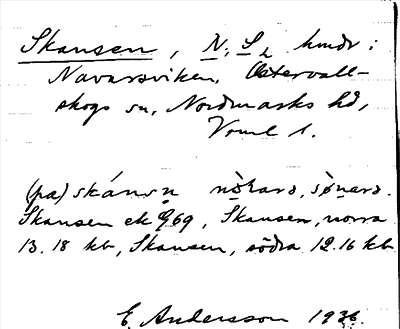 Skansen, N, S, hmdr i
Navarsviken, Östervall-
skogs sn, Nordmarks hd,
Vrml l.
(pa) skánsn nò̱rarə, sø̀narə.
Skansen ek 969, Skansen, norra
13.18 kb, Skansen, södra 12.16 kb
E. Andersson 1936.